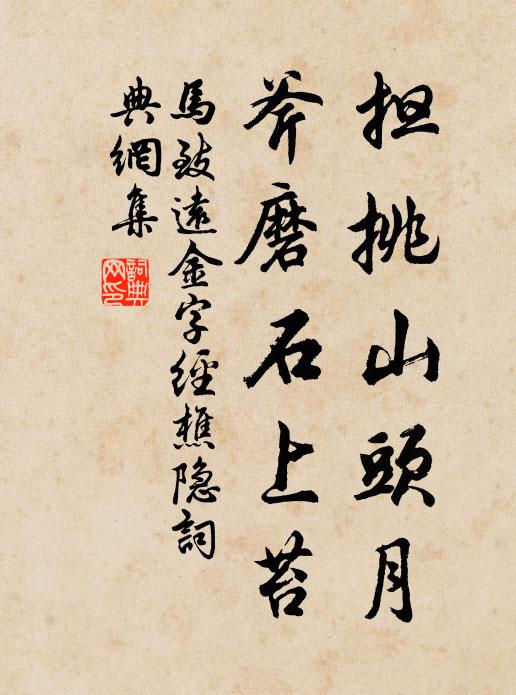 担挑山頭月
斧磨石上苔
馬致遠金字經樵隐詞
典網集
詞典
网印